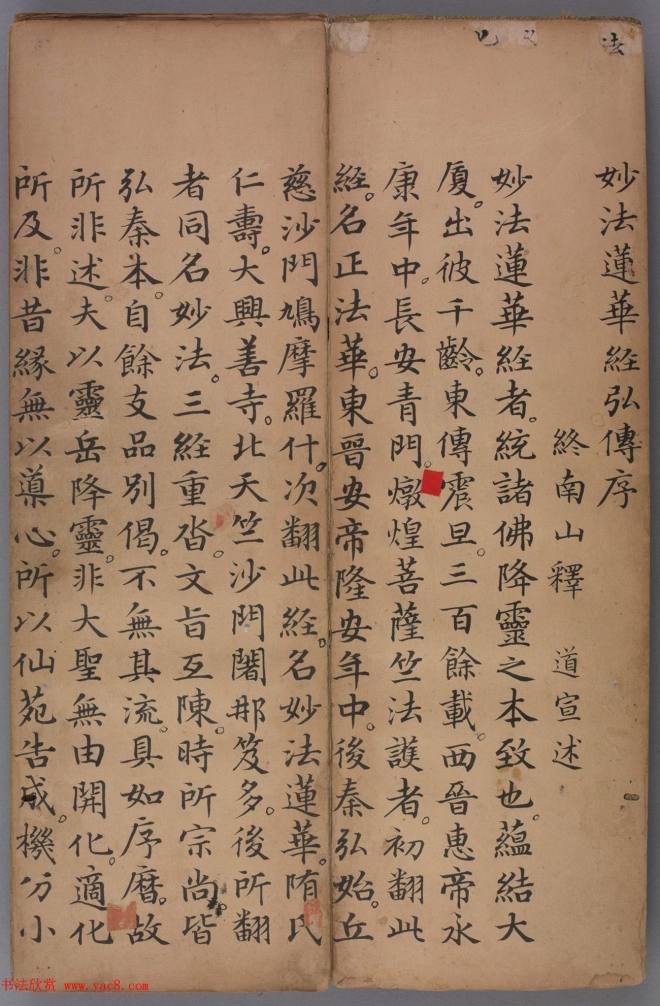 妙法蓮華經弘傳序
終南山釋 道宣述
妙法蓮華經者。統諸佛降靈之本致也。蘊結大
厦。出彼千齡。東傳震旦。三百餘載。西晉惠帝永
康年中。長安青門。燉煌菩薩竺法護者。初翻此
經。名正法華。東晉安帝隆安年中。後秦弘始。丘
慈沙門鳩摩羅什。次翻此經。名妙法蓮華。隋氏
仁壽。大興善寺。北天竺沙門闍那笈多。後所翻
者同名妙法。三經重沓。文旨互陳。時所宗尚。皆
弘秦本。自餘支品別偈。不無其流。具如序曆。故
所非述。夫以靈岳降靈。非大聖無由開化。適化
所及。非昔緣無以導心。所以仙苑告成。機分小
法
书法欣赏 www.yac8.com